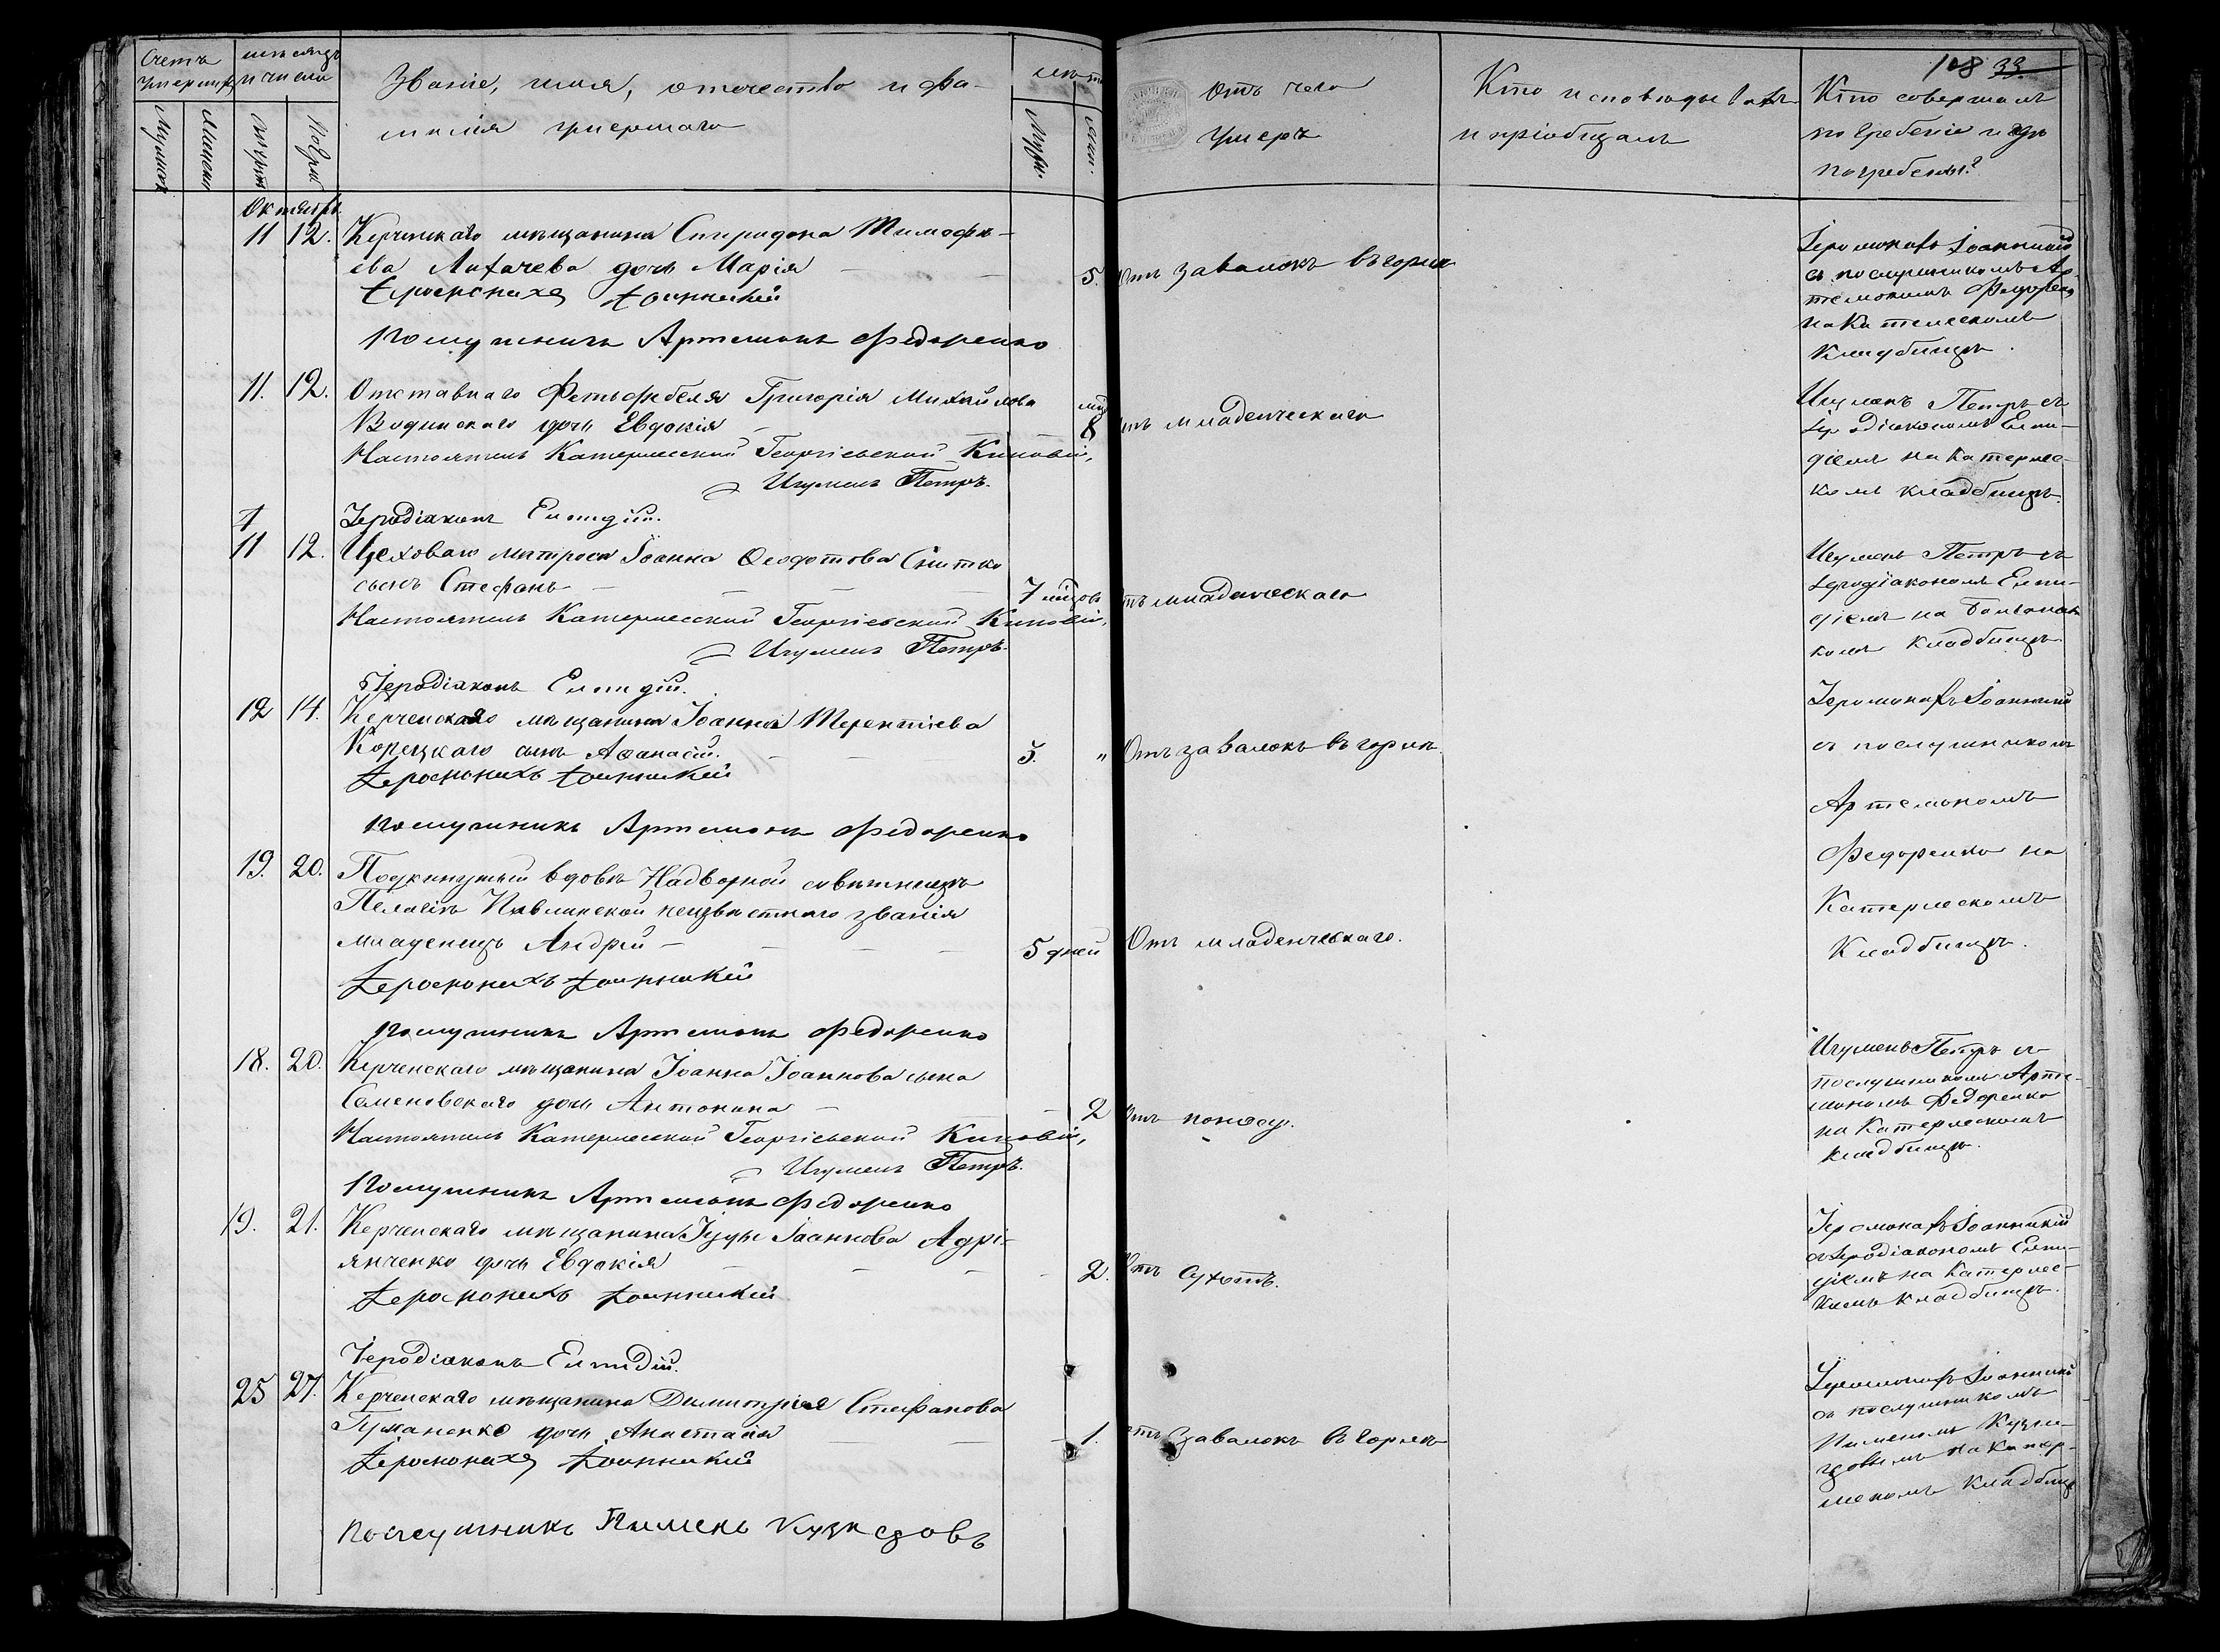 108 33.
Счетъ умершихъ
мѣсяцъ и число
Званіе, имя, отечество и фа-
милія умершаго
лѣта
Отъ чего
умеръ
Кто исповѣдывалъ
и пріобщалъ
Кто совершалъ
погребеніе и гдѣ
погребены?
Октябрь
11 12. Керченскаго мѣщанина Спиридона Тимофѣ-
ева Лихачева дочь Марія 5. Отъ завалокъ въ горлѣ
Іеромонахъ Іоанникій
Послушникъ Артемонъ Федоренко
Іеромонахъ Іоанникій
съ послушникомъ Ар-
темономъ Федоренко
на Катерлесскомъ
кладбищѣ.
11. 12. Отставного Фельдфебеля Григорія Михайлова
Водинскаго дочь Евдокія 8 отъ младенческаго
Настоятель Катерлесской Георгіевской Киновіи,
Игуменъ Петръ.
Іеродіаконъ Елпидій.
Игуменъ Петръ съ
Іеродіакономъ Елпи-
діемъ на Катерлес-
комъ кладбищѣ.
11 12. Цеховаго матроса Іоанна Ѳеодотова Снитко
сынъ Стефанъ 7 отъ младенческаго
Настоятель Катерлесской Георгіевской Киновіи,
Игуменъ Петръ.
Іеродіаконъ Елпидій.
Игуменъ Петръ съ
Іеродіакономъ Елпи-
діемъ на
комъ кладбищѣ
12 14. Керченскаго мѣщанина Іоанна Терентіева
Корецкаго сынъ Аѳанасій. 5. " Отъ завалокъ въ горлѣ.
Іеромонахъ Іоанникій
Послушникъ Артемонъ Федоренко
Іеромонахъ Іоанникій
съ послушникомъ
Артемономъ
Федоренко на
Катерлесскомъ
Кладбищѣ.
19. 20. Подкинутый вдовѣ Надворной совѣтницѣ
Пелагіи Павлинской неизвѣстнаго званія
младенецъ Андрей 5 дней Отъ младенческаго.
Іеромонахъ Іоанникій
Послушникъ Артемонъ Федоренко
18. 20. Керченскаго мѣщанина Іоанна Іоаннова сына
Семеновскаго дочь Антонина 2 Отъ поносу.
Настоятель Катерлесской Георгіевской Киновіи,
Игуменъ Петръ.
Послушникъ Артемонъ Федоренко
Игуменъ Петръ съ
послушникомъ Арте-
мономъ Федоренко
на Катерлесскомъ
кладбищѣ.
19. 21. Керченскаго мѣщанина Іуды Іоаннова Адрі-
янченко дочь Евдокія 2. Отъ сухотъ.
Іеромонахъ Іоанникій
Іеродіаконъ Елпидій.
Іеромонахъ Іоанникій
съ Іеродіакономъ Елпи-
діемъ на Катерлес-
комъ кладбищѣ.
25 27. Керченскаго мѣщанина Димитрія Стефанова
Гуманенко дочь Анастасія 1. отъ завалокъ въ горлѣ
Іеромонахъ Іоанникій
Послушникъ Пименъ Кузнецовъ
Іеромонахъ Іоанникій
съ послушникомъ
Пименомъ Кузне-
цовымъ на Катер-
лескомъ кладбищѣ